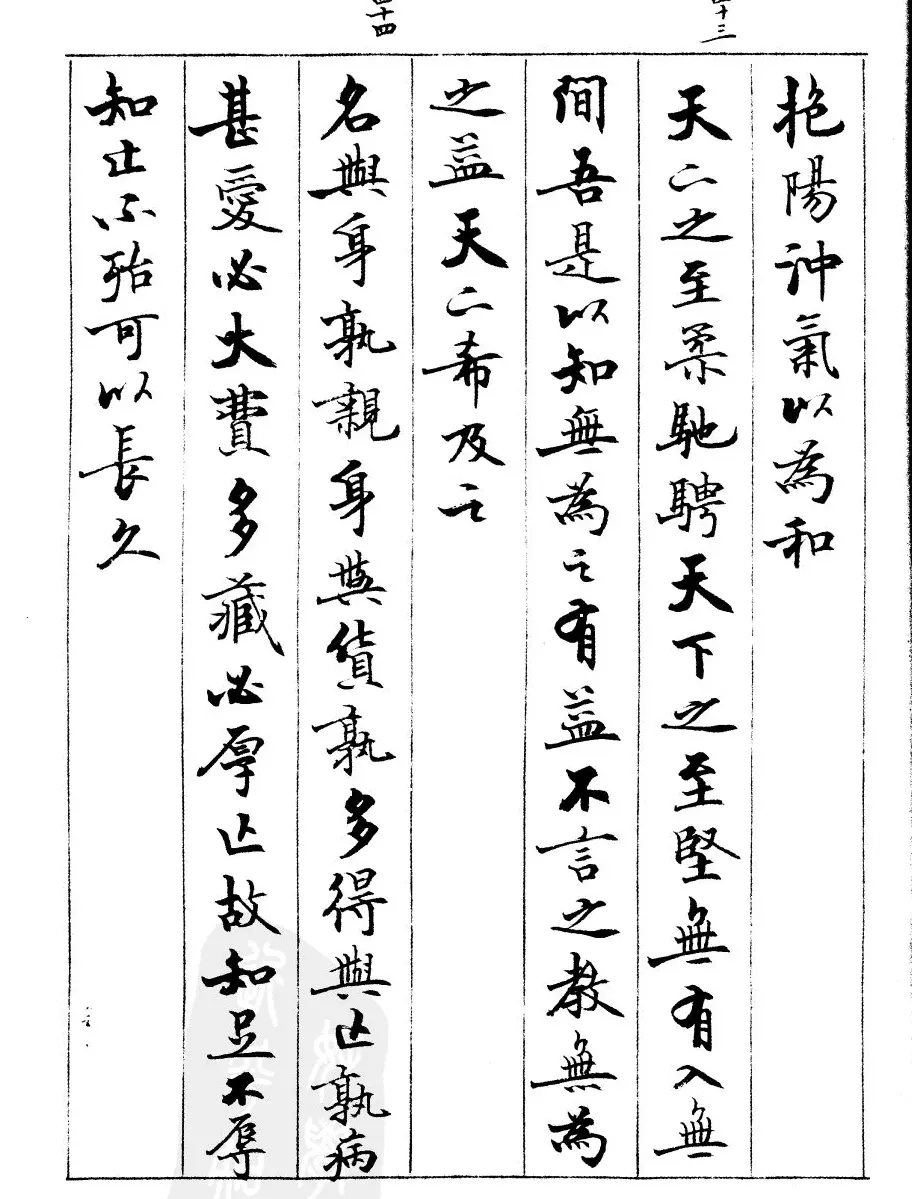 四十三
抱陽沖氣以為和
天下之至柔馳騁天下之至堅無有入無
間吾是以知無為之有益不言之教無為
之益天下希及之
四十四
名與身孰親身與貨孰多得與亡孰病
甚愛必大費多藏必厚亡故知足不辱
知止不殆可以長久